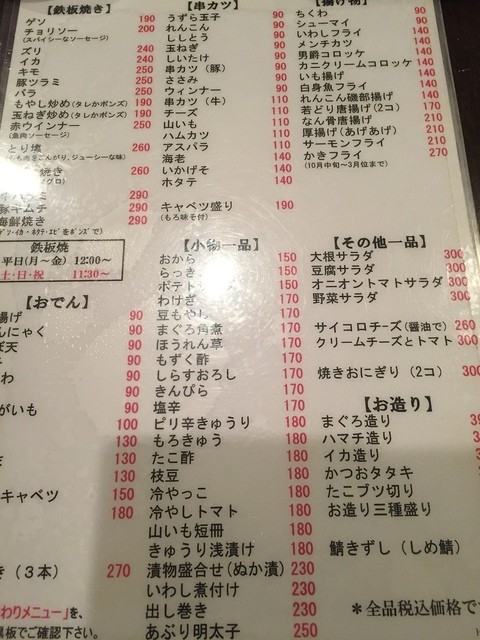 【鉄板焼き】
ゲソ 190
チョリソー 200
(スパイシーなソーセージ)
ズリ 240
イカ 240
キモ
豚ツラミ 250
バラ 250
もやし炒め(タレかポンズ) 190
玉ねぎ炒め(タレかポンズ) 190
赤ウインナー 250
(魚肉ソーセージ)
とり塩 260
290
豚キムチ 290
海鮮焼き 290
鉄板焼
平日(月〜金) 12:00〜
土・日・祝 11:30〜
【おでん】
90
90
90
90
90
100
130
130
キャベツ 150
180
(3本) 270
【串カツ】
うずら玉子 90
れんこん 90
ししとう 90
玉ねぎ 90
しいたけ 90
串カツ(豚) 90
ささみ 90
ウィンナー 90
串カツ(牛) 110
チーズ 110
山いも 110
ハムカツ 110
アスパラ 140
海老 140
いかげそ 140
ホタテ 140
キャベツ盛り 190
(もろ味そ付)
【小物一品】
おから 150
らっき
ポテト
わけぎ 170
豆もやし 170
まぐろ角煮 170
ほうれん草 170
もずく酢 170
しらすおろし 170
きんぴら 170
塩辛 170
ピリ辛きゅうり 180
もろきゅう 180
たこ酢 180
枝豆 180
冷やっこ 180
冷やしトマト 180
山いも短冊 180
きゅうり浅漬け 180
漬物盛合せ(ぬか漬) 230
いわし煮付け 230
出し巻き 230
あぶり明太子 250
【揚げ物】
ちくわ 90
シューマイ 90
いわしフライ 140
メンチカツ 140
男爵コロッケ 140
カニクリームコロッケ 140
いも揚げ 140
白身魚フライ 140
れんこん磯部揚げ 140
若どり唐揚げ(2コ) 170
なん骨唐揚げ 210
厚揚げ(あげあげ) 210
サーモンフライ 210
かきフライ 270
(10月中旬〜3月位まで)
【その他一品】
大根サラダ 300
豆腐サラダ 300
オニオントマトサラダ 300
野菜サラダ 300
サイコロチーズ(醤油で) 260
クリームチーズとトマト 300
焼きおにぎり(2コ) 300
【お造り】
まぐろ造り
ハマチ造り
イカ造り
かつおタタキ
たこブツ切り
お造り三種盛り
鯖きずし(しめ鯖)
わりメニュー」を、
黒板でご確認下さい。
*全品税込価格で